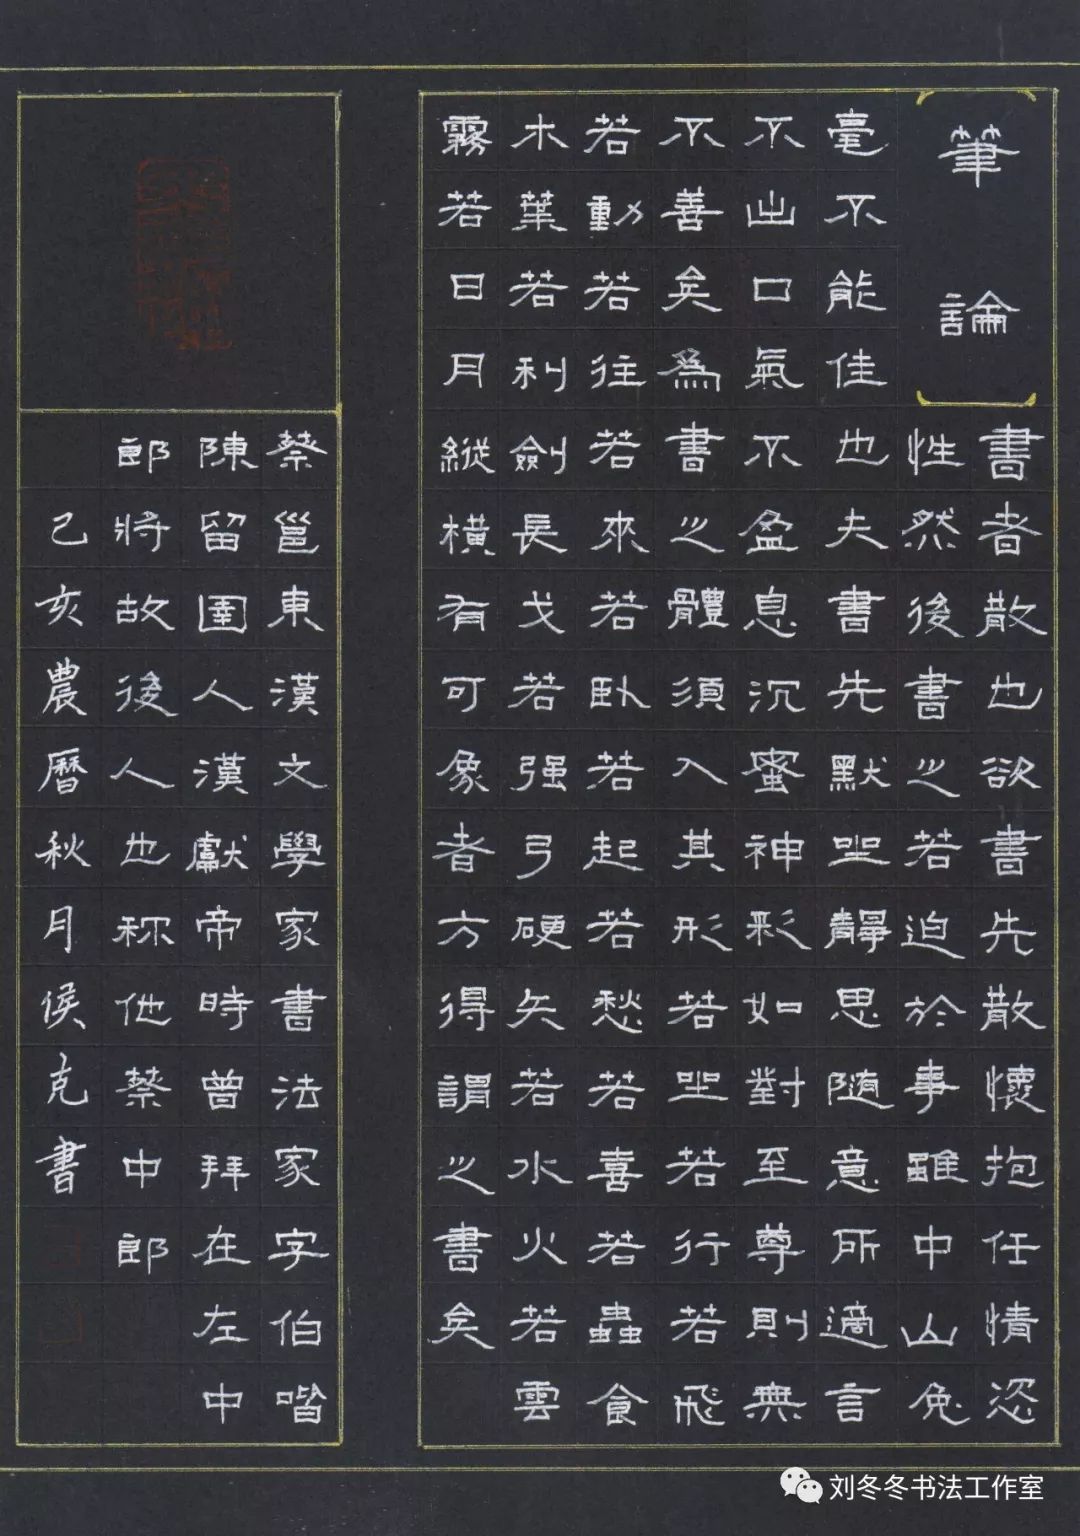 筆論
書者散也欲書先散懷抱任情恣
性然後書之若迫於事雖中山兔
毫不能佳也夫書先默坐靜思随意所適言
不出口氣不盈息沉蜜神彩如對至尊則無
不善矣為書之體須入其形若坐若行若飛
若動若往若來若卧若起若愁若喜若蟲食
木葉若利劍長戈若强弓硬矢若水火若雲
霧若日月縱橫有可象者方得謂之書矣
蔡邕東漢文學家書法家字伯喈
陳留圉人漢獻帝時曾拜在左中
郎將故後人也称他蔡中郎
己亥農曆秋月侯克書
刘冬冬书法工作室